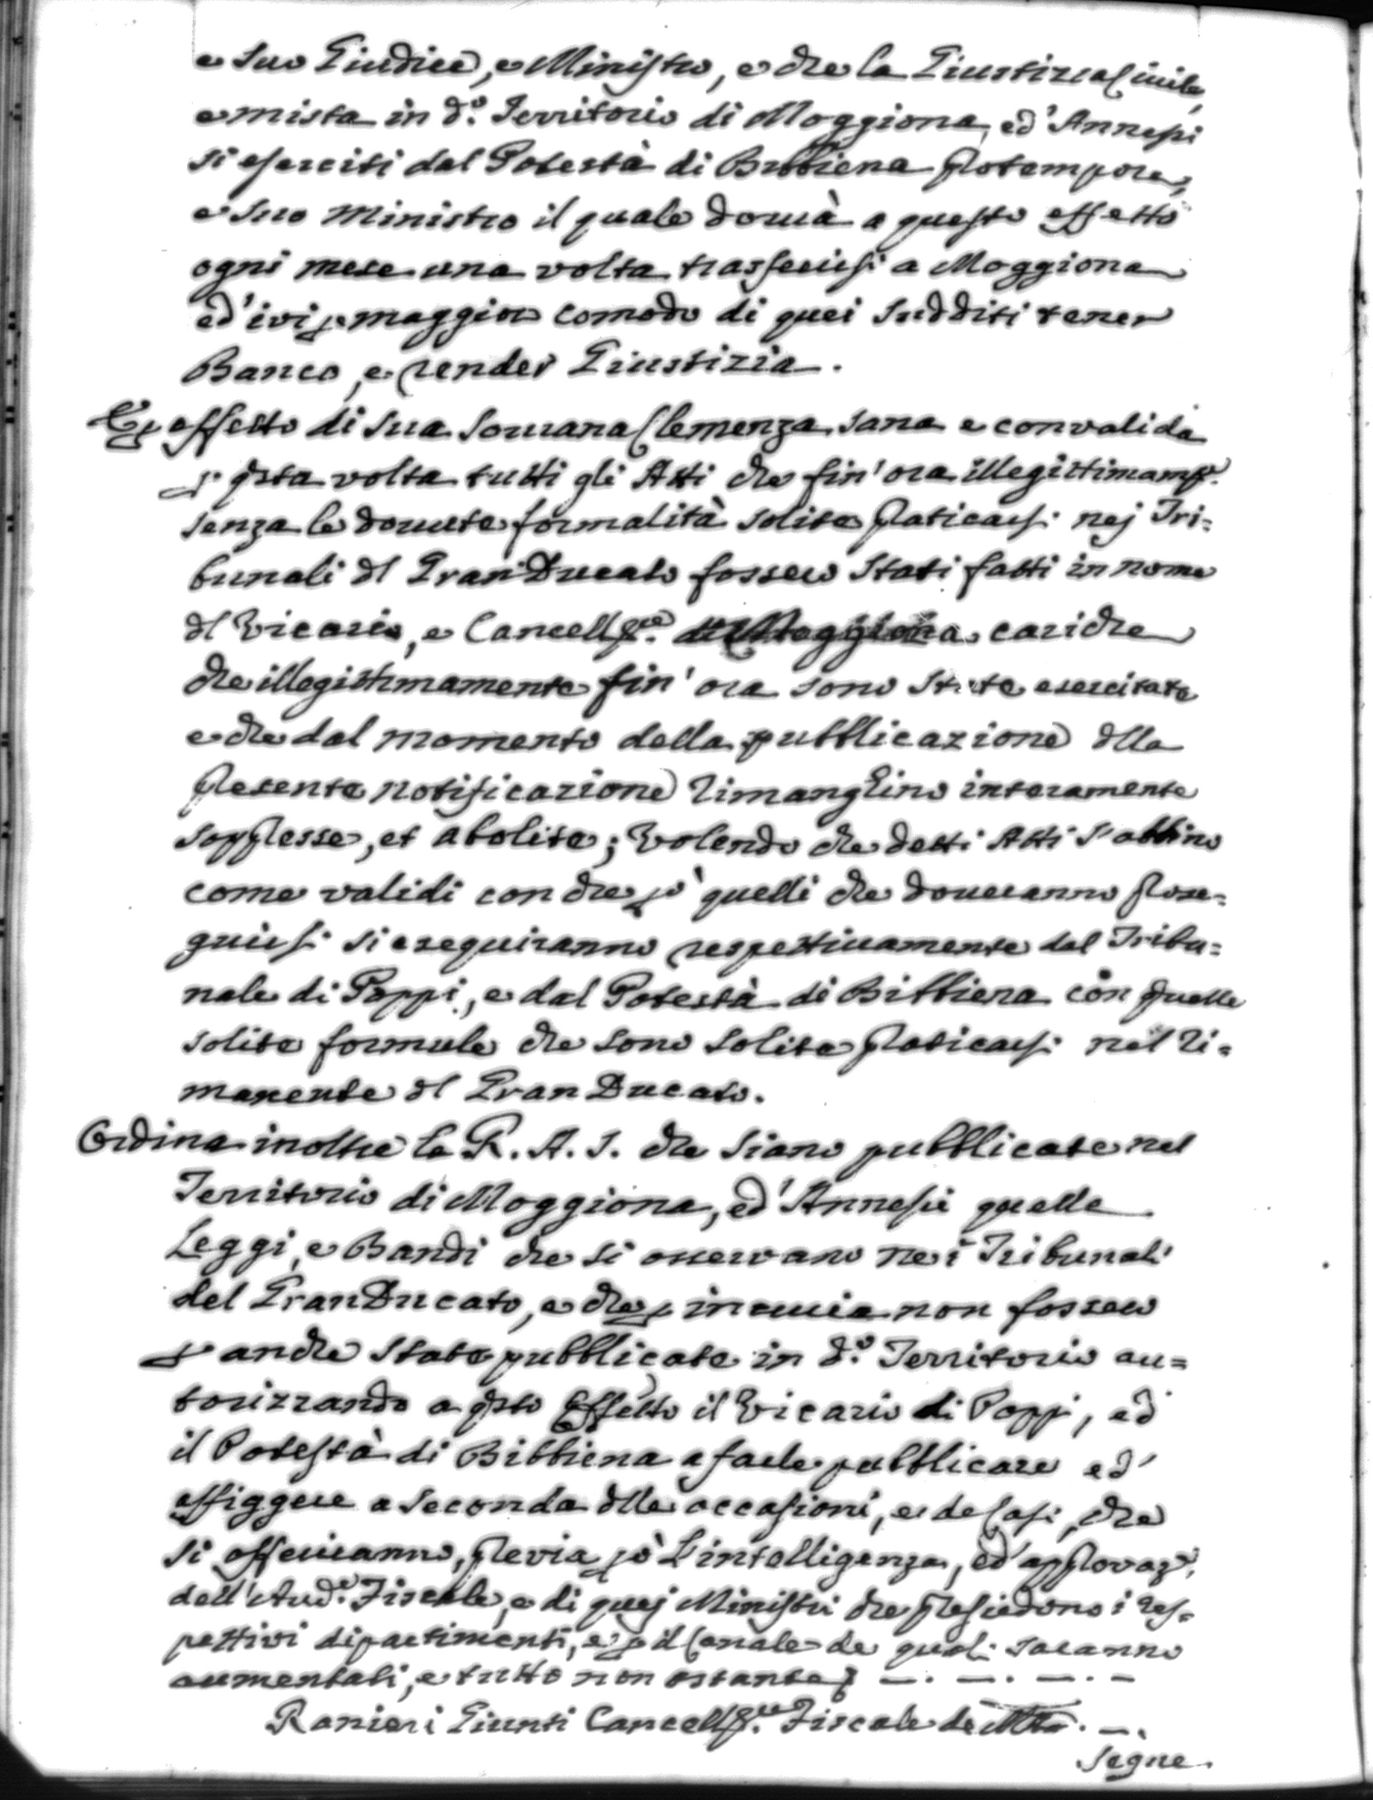 e suo Giudice, e Ministro, e che la Giustizia Civile,
e mista in d.º Territorio di Moggiona, ed' Annessi
si eserciti dal Potestà di Bibbiena protempore,
e suo ministro il quale dovrà a questo effetto
ogni mese una volta trasferirsi a Moggiona
ed' ivi p maggior comodo di quei sudditi tener
Banco, e render Giustizia.
Per effetto di sua sovrana Clemenza sana e convalida
p qsta volta tutti gli Atti che fin' ora illegittimamte.
senza le dovute formalità solite praticarsi nej Tri=
bunali dl Gran Ducato fossero stati fatti in nome
dl Vicario, e Cancellre. di Moggiona cariche
che illegittimamente fin' ora sono state esercitate
e che dal momento della pubblicazione dlla
presente notificazione rimanghino interamente
soppresse, et abolite; Volendo che detti Atti s' abbino
come validi con che pò quelli che doveranno prose=
guirsi si eseguiranno respettivamente dal Tribu=
nale di Poppi, e dal Potestà di Bibbiena con quelle
solite formule che sono solite praticarsi nel ri=
manente dl Gran Ducato.
Ordina inoltre la R. A. S. che siano pubblicate nel
Territorio di Moggiona, ed' Annessi quelle
Leggi, e Bandi che si osservano nei Tribunali
del Gran Ducato, e che p incuria non fossero
p anche state pubblicate in d.º Territorio au=
torizzando a qsto Effetto il Vicario di Poppi, ed
il Potestà di Bibbiena a farle pubblicare ed'
affiggere a seconda dlle occasioni, e de Casi, che
si offeriranno, previa pò L'intelligenza, ed' approvaz.e
dell' Aud.e Fiscale, e di quej Ministri che presiedono i res=
pettivi dipartimenti, e p il Canale de quali saranno
aumentati, e tutto non ostante —.—.—.—
Ranieri Giunti Cancellre. Fiscale de Mto. —.
Segue.